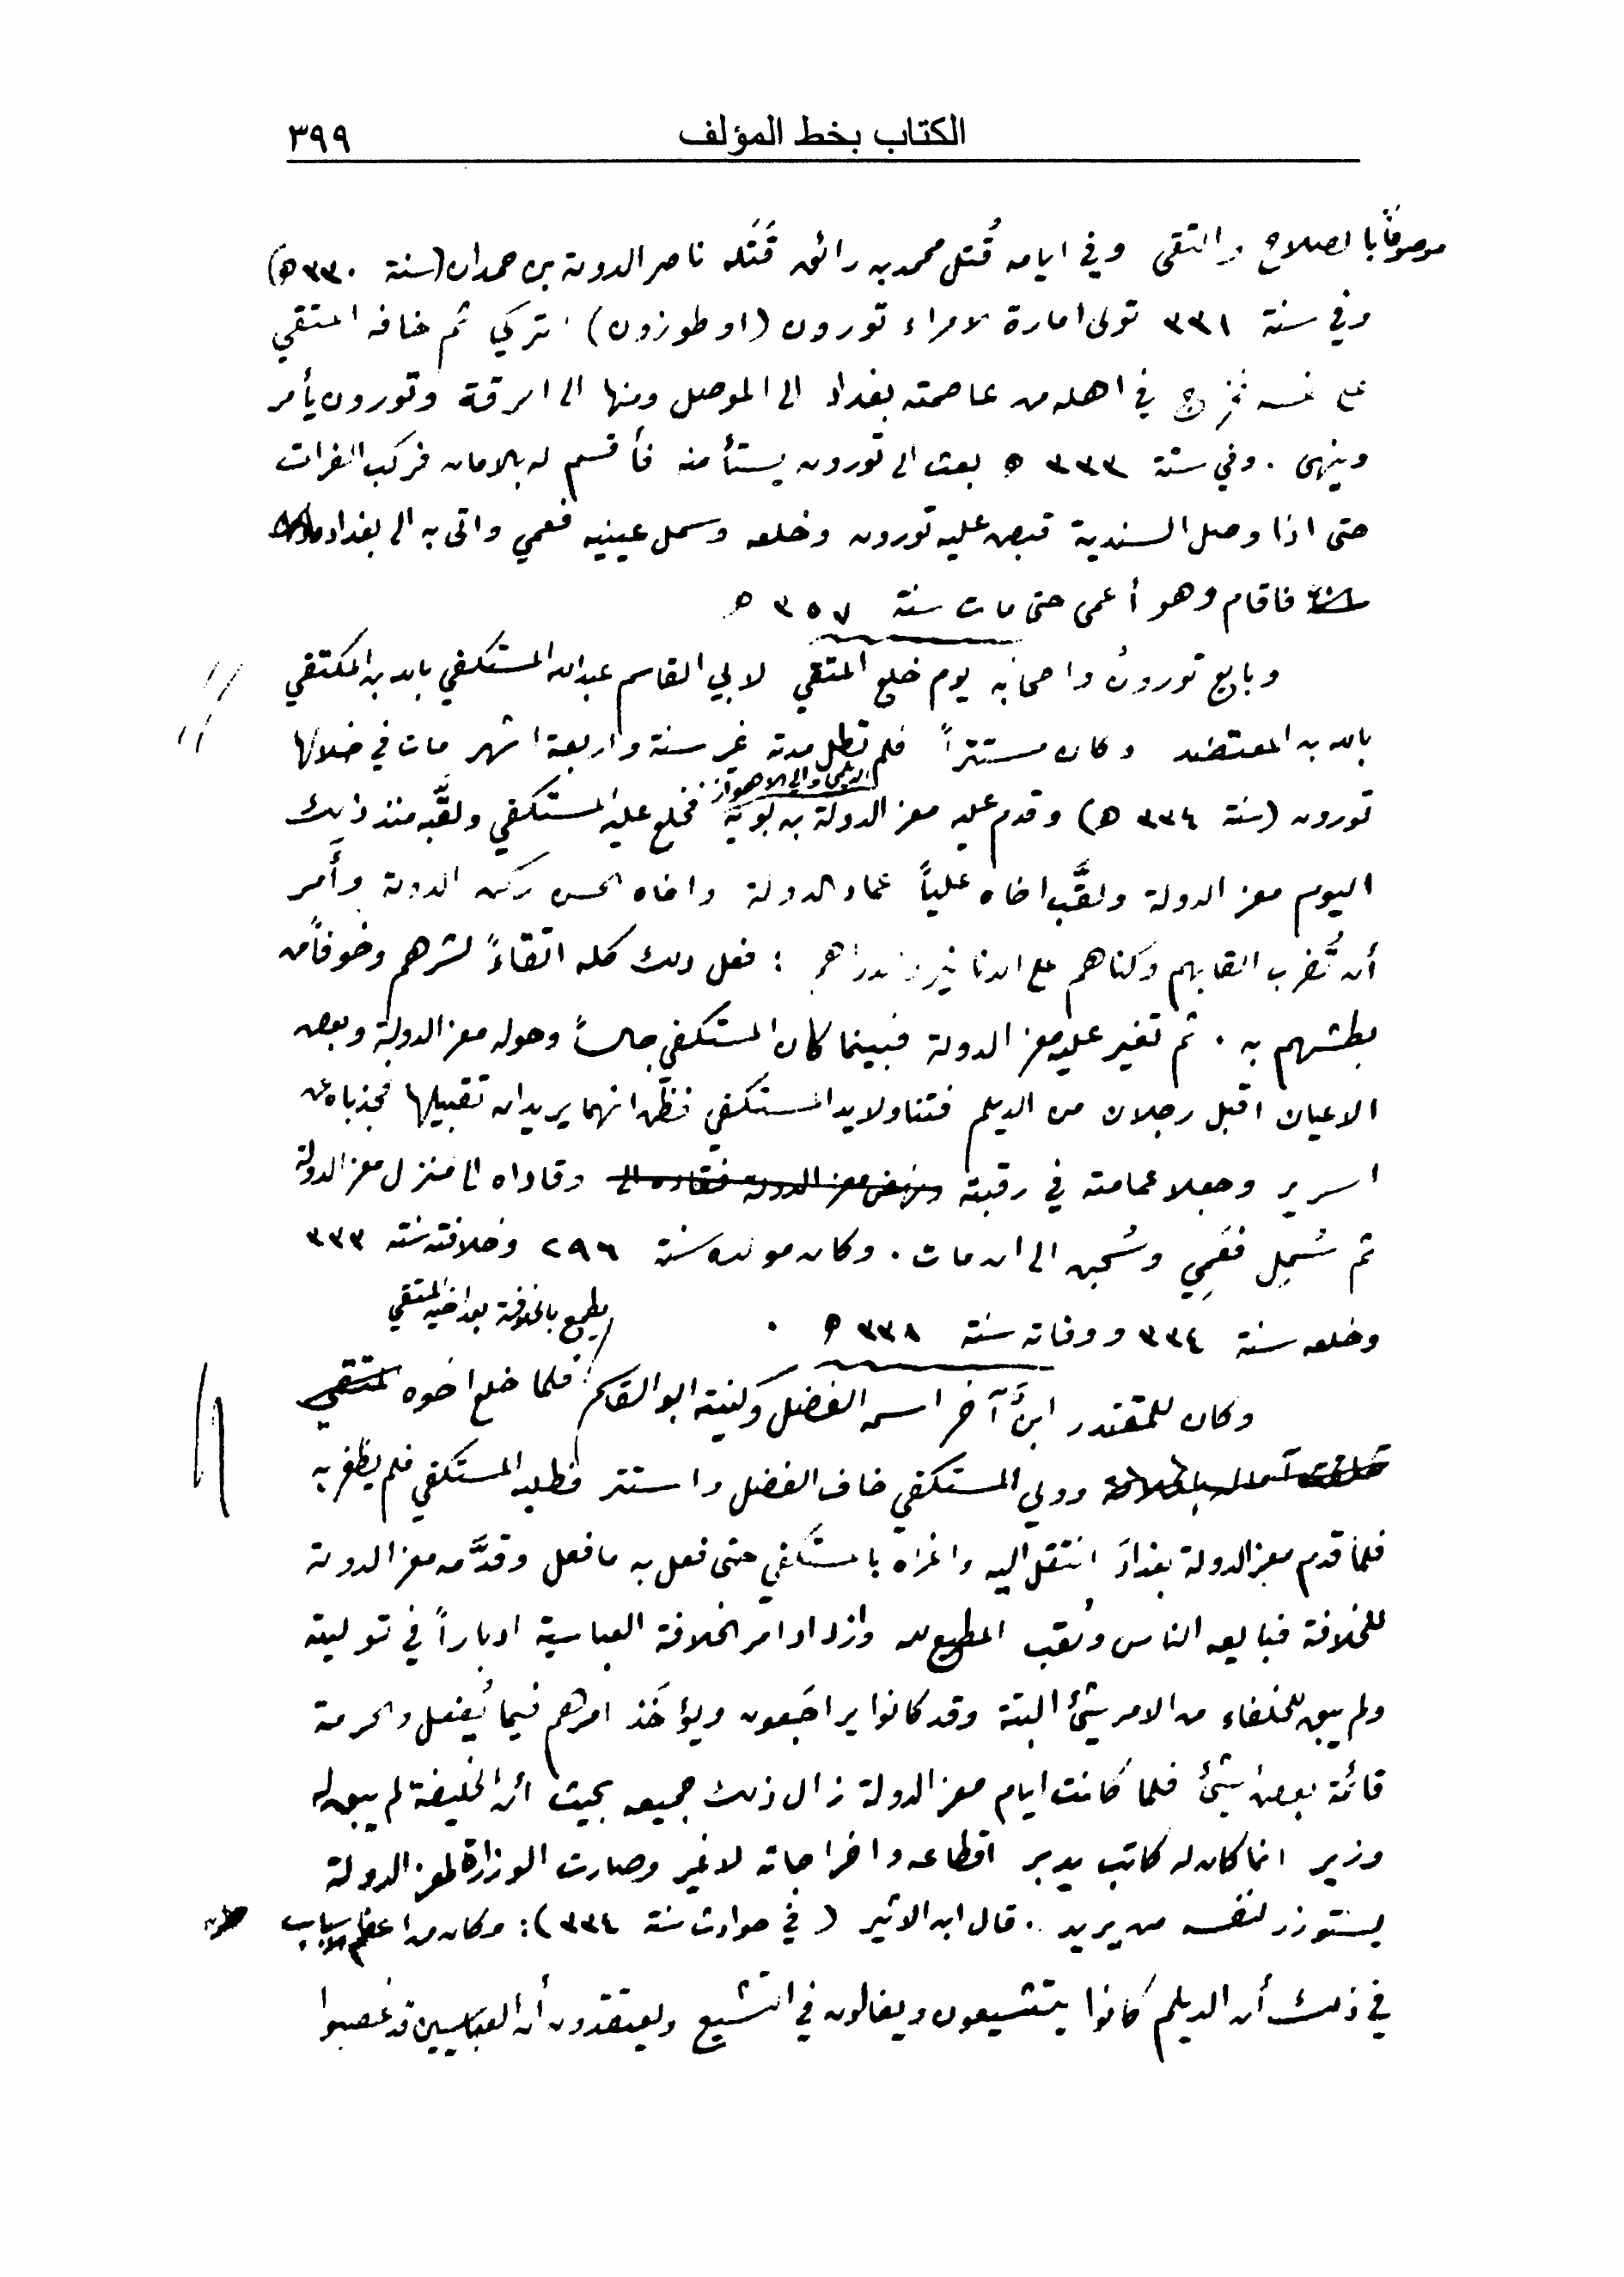 الكتاب بخط المؤلف ٣٩٩
موصوفاً بالصلاح والتقى وفي ايامه قُتل محمد بن رائق قَتَله ناصر الدولة بن حمدان (سنة ٣٣٠ ه)
وفي سنة ٣٣١ تولى امارة الامراء تورون (او طوزون) التركي ثم خافه المتقي
على نفسه فخرج في اهله من عاصمته بغداد الى الموصل ومنها الى الرقة وتورون يأمر
وينهى . وفي سنة ٣٣٣ ه بعث الى تورون يستأمنه فأقسم له بالامان فركب الفرات
حتى اذا وصل السندية قبض عليه تورون وخلعه وسمل عينيه فعمي واتى به الى بغداد
فاقام وهو أعمى حتى مات سنة ٣٥٧ ه
وبايع تورونُ واصحابه يوم خلع المتقي لابي القاسم عبدالله المستكفي بالله بن المكتفي
بالله بن المعتضد وكان مستتراً فلم تطل مدته غير سنة واربعة اشهر مات في خلالها
الديلمي والي الاهواز
تورون (سنة ٣٣٤ ه) وقدم عليه معز الدولة بن بويه فخلع عليه المستكفي ولقَّبه منذ ذلك
اليوم معز الدولة ولقَّب اخاه علياً عماد الدولة واخاه الحسن ركن الدولة وأَمر
أن تُضرب القابهم وكناهم على الدنانير والدراهم : فعل ذلك كله اتقاءً لشرهم وخوفاً من
بطشهم به . ثم تغير عليه معز الدولة فبينما كان المستكفي جالساً وحوله معز الدولة وبعض
الاعيان اقبل رجلان من الديلم فتناولا يد المستكفي فظن انهما يريدان تقبيلها فجذباه عن
السرير وجعلا عمامته في رقبته ونهض معز الدولة فقاده الى وقاداه الى منزل معز الدولة
ثم سُمِل فعَمِي وسُجن الى ان مات . وكان مولده سنة ٢٩٦ وخلافته سنة ٣٣٣
وخلعه سنة ٣٣٤ ووفاته سنة ٣٣٨ ه .
يطمع بالخلافة بعد اخيه المتقي
وكان للمقتدر ابنٌ آخر اسمه الفضل وكنيته ابو القاسم فلما خلع اخوه المتقي
وولي المستكفي خاف الفضل واستتر فطلبه المستكفي فلم يظفر به
فلما قدم معز الدولة بغدادَ انتقل اليه واغراه بالمستكفي حتى فعل به ما فعل وقدَّمه معز الدولة
للخلافة فبايعه الناس ولُقب المطيع لله وازداد امر الخلافة العباسية ادباراً في توليته
ولم يبق للخلفاء من الامر شئ البتة وقد كانوا يراجَعون ويؤخَذ امرهم فيما يُفعل والحرمة
قائمة بعض شئ فلما كانت ايام معز الدولة زال ذلك جميعه بحيث أن الخليفة لم يبق له
وزير انما كان له كاتب يدبر اقطاعه واخراجاته لا غير وصارت الوزارة لمعز الدولة
يستوزر لنفسه من يريد . قال ابن الاثير (في حوادث سنة ٣٣٤) : وكان من اعظم الاسباب
في ذلك أن الديلم كانوا يتشيعون ويغالون في التشيع ويعتقدون أن العباسيين قد غصبوا